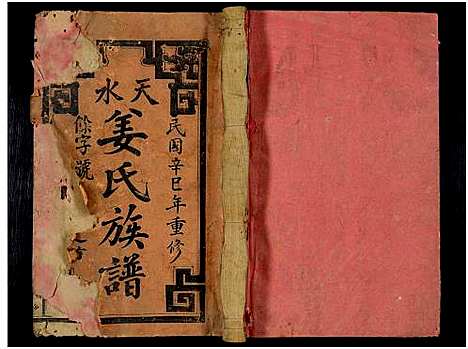 天水
民国辛巳年重修
姜氏族譜
餘字號